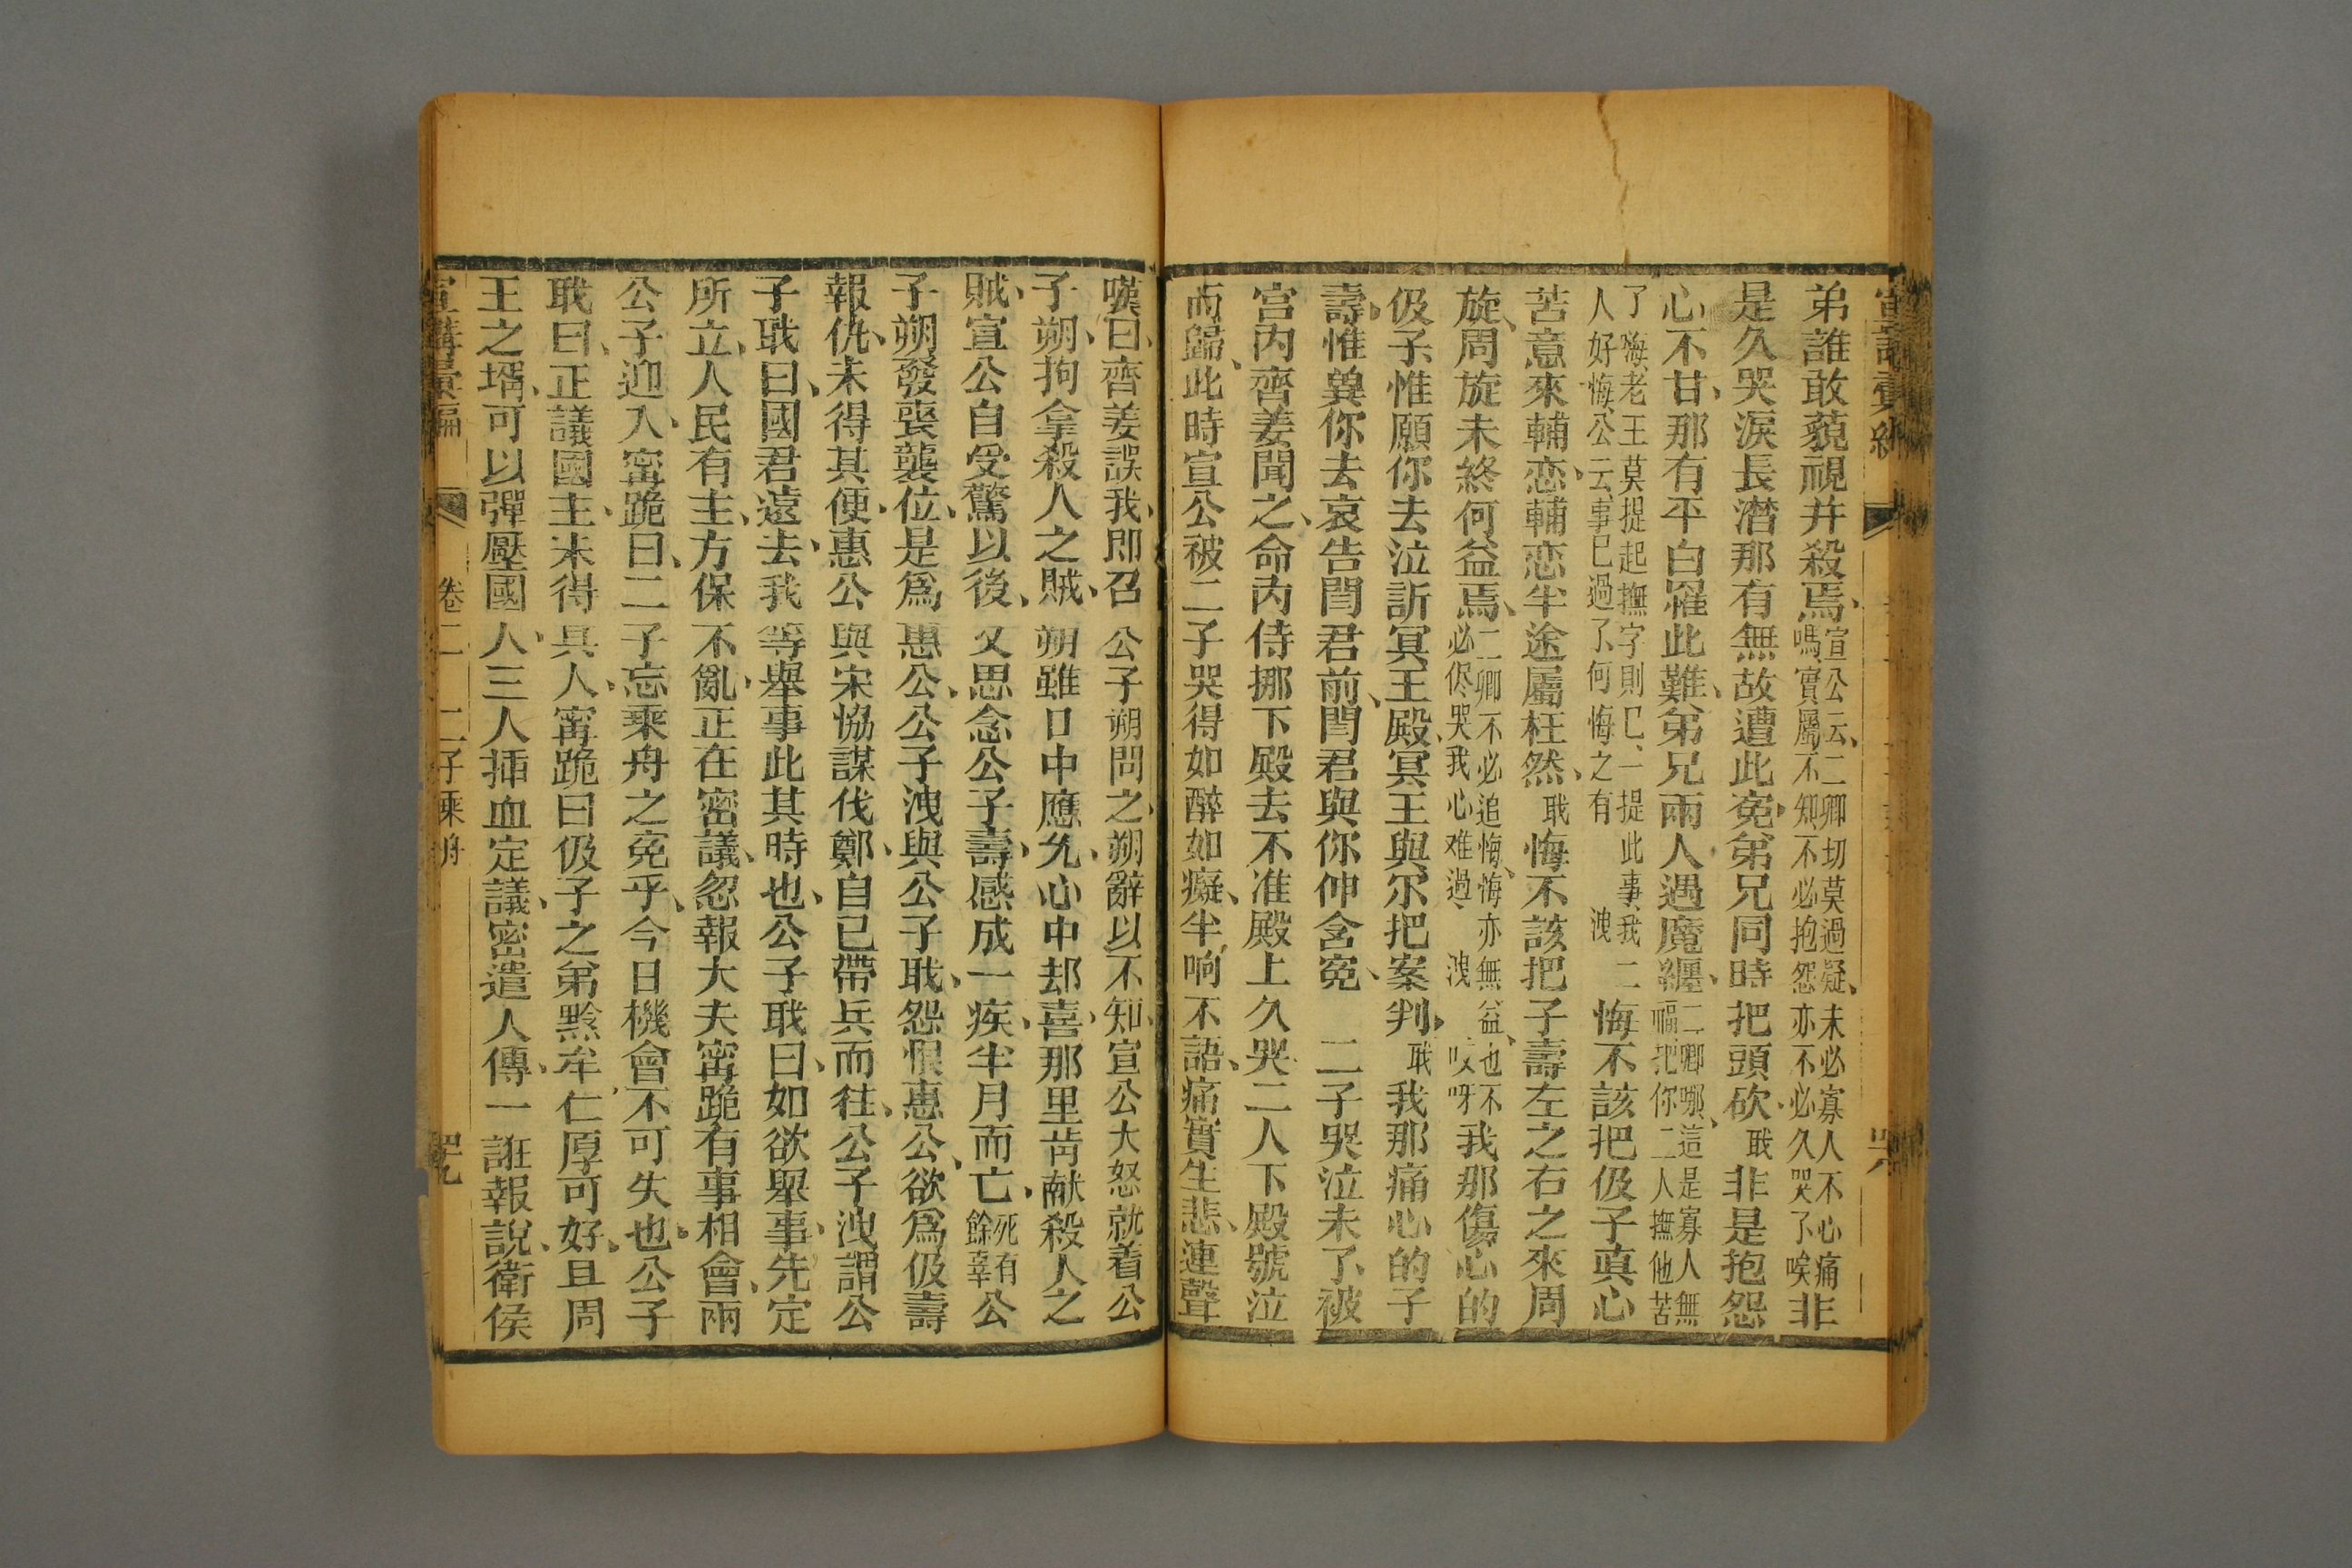 宣講彙編
四八
弟誰敢藐視并殺焉、宣公云、二卿切莫過疑、未必寡人不心痛嗎、實屬不知、不必抱怨、亦不必久哭了唉非
是久哭淚長潸那有無故遭此寃弟兄同時把頭砍、耽非是抱怨
心不甘、那有平白罹此難、弟兄兩人遇魔纏、二卿哪、這是寡人無福、把你二人撫他苦
了、悔老王莫提起撫字則已、一提此事、我二人好悔、公云、事已過了、何悔之有洩悔不該把伋子真心
苦意來輔恋、輔恋半途屬枉然、耽悔不該把子壽左之右之來周
旋、周旋未終何益焉、二卿不必追悔、悔亦無益、也不必侭哭、我心难過、洩哎呀我那傷心的
伋子、惟願你去泣訴冥王殿、冥王與尔把案判、耽我那痛心的子
壽、惟兾你去哀告閆君前、閆君與你伸含寃、二子哭泣未了、被
宫内齊姜聞之、命内侍挪下殿去不准殿上久哭、二人下殿號泣
而歸、此時宣公被二子哭得如醉如癡、半响不語、痛實生悲、連聲
嘆曰、齊姜誤我、即召公子朔問之、朔辭以不知、宣公大怒就着公
子朔、拘拿殺人之賊、朔雖口中應允、心中却喜、那里肯献殺人之
賊、宣公自受驚以後、又思念公子壽、感成一疾、半月而亡、死有餘辜公
子朔發喪襲位、是爲惠公、公子洩與公子耽、怨恨惠公、欲爲伋壽
報仇、未得其便、惠公與宋協謀伐鄭、自己帶兵而往、公子洩謂公
子耽曰、國君遠去、我等舉事此其時也、公子耽曰、如欲舉事、先定
所立、人民有主、方保不亂、正在密議、忽報大夫寗跪有事相會、兩
公子迎入、寗跪曰、二子忘乘舟之寃乎、今日機會不可失也、公子
耽曰、正議國主、未得其人、寗跪曰伋子之弟黔牟、仁厚可好、且周
王之壻、可以彈壓國人、三人揷血定議、密遣人傳、一誑報說、衛侯
宣講彙編
卷二
二子乘舟
四九